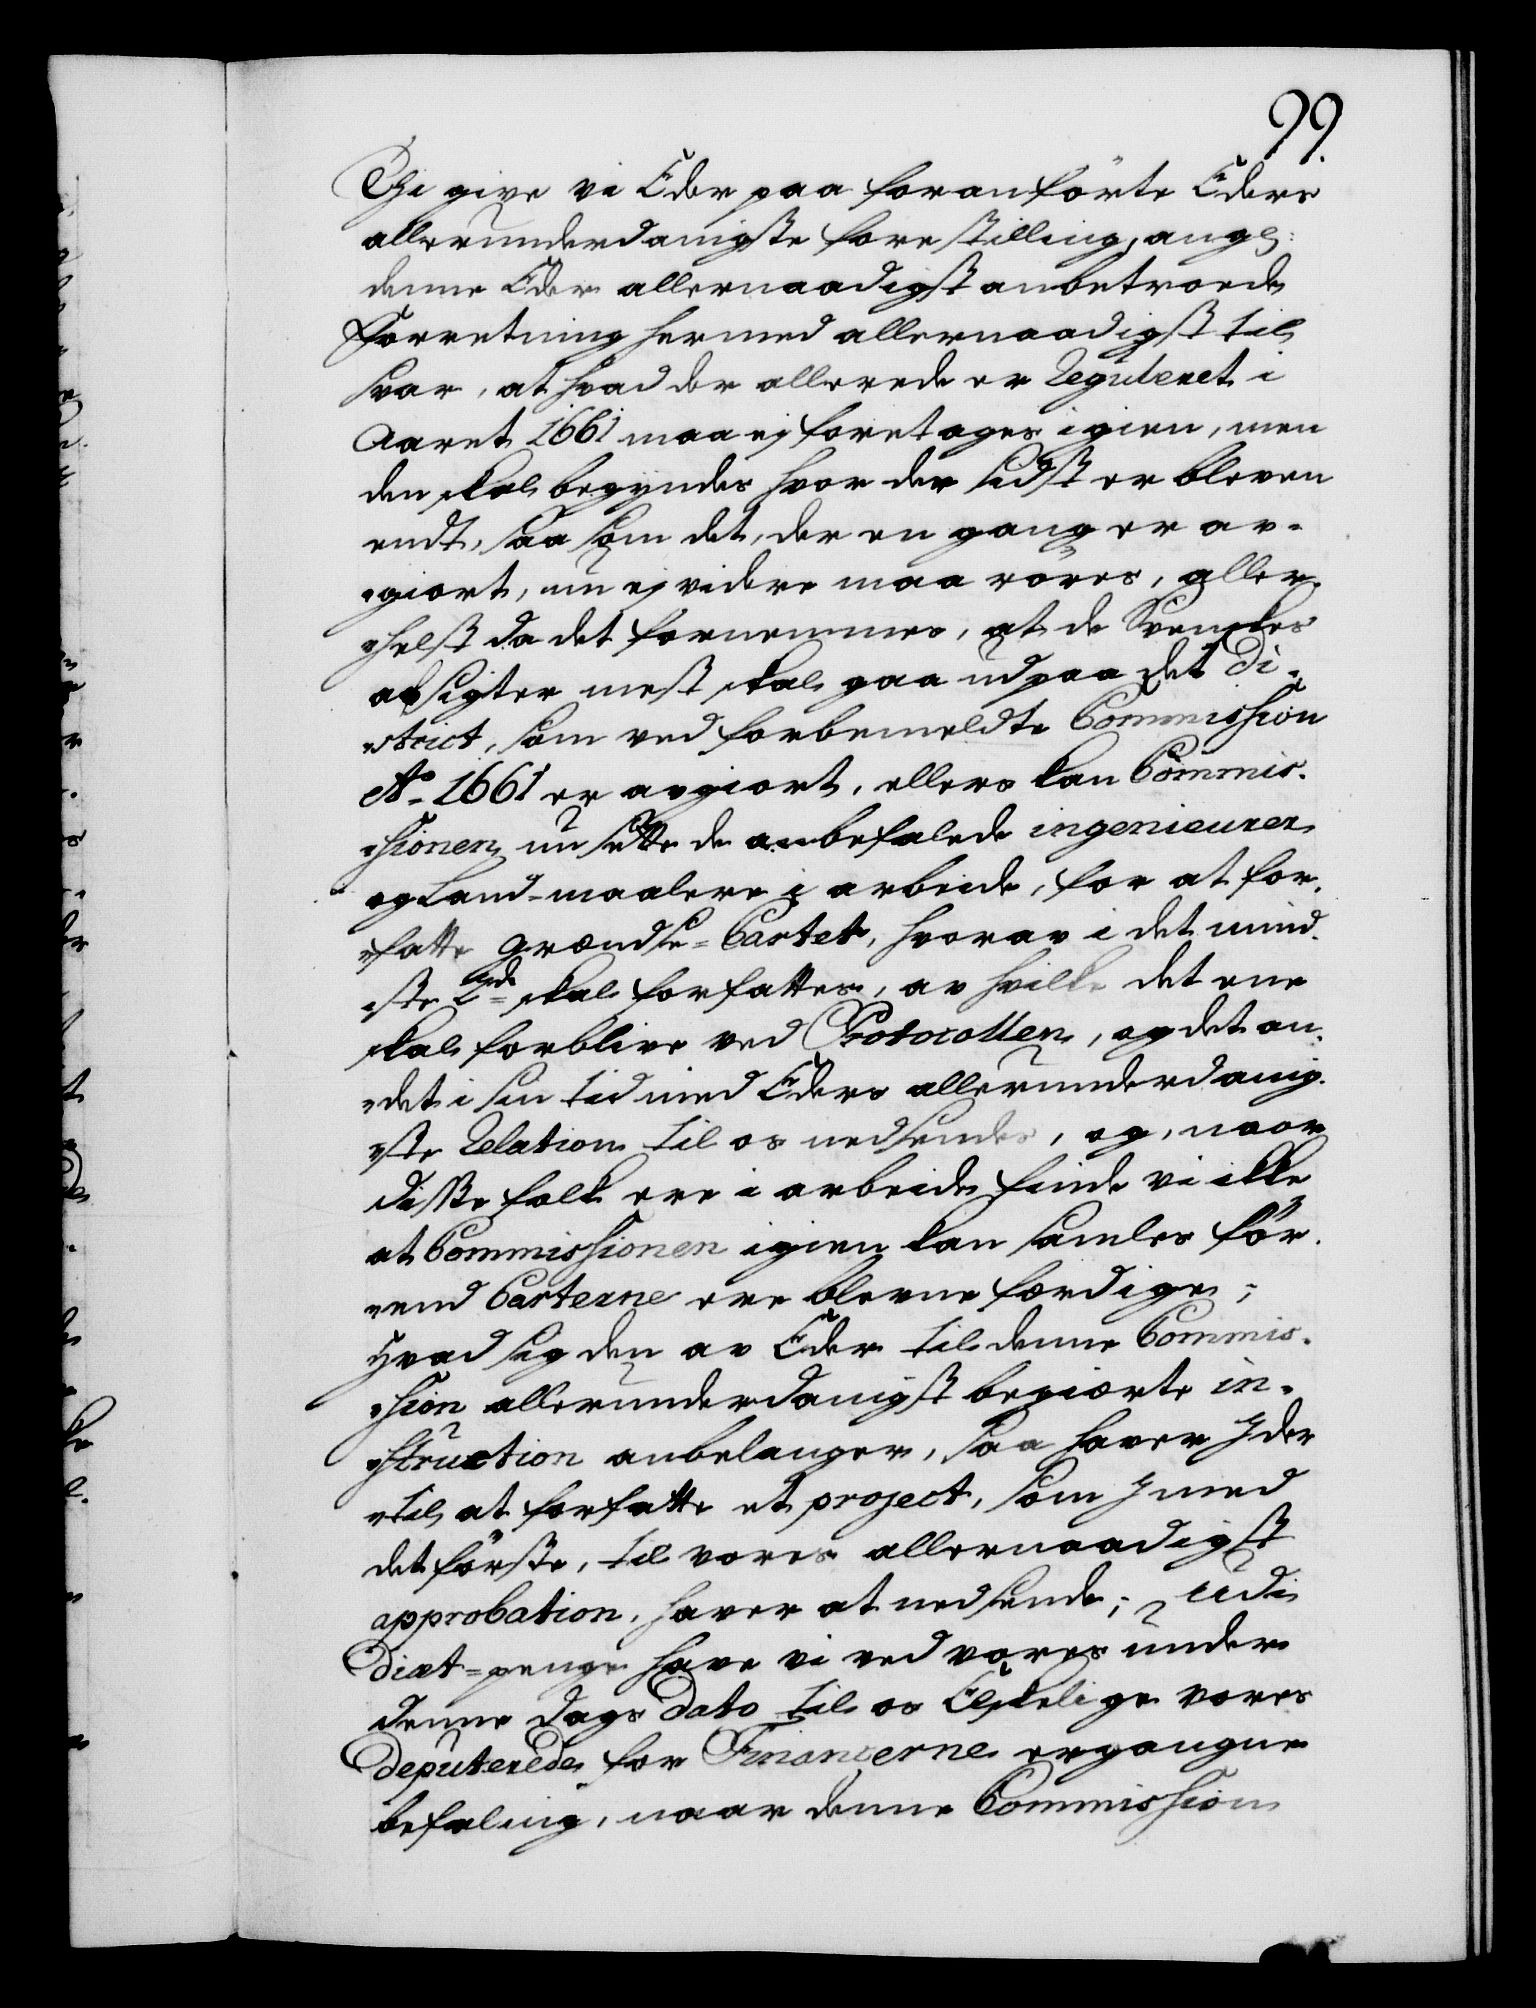 99.
Thi give vi Eder paa foranförte Eders
allerunderdanigste forestilling, ang:
denne Eder allernaadigst anbetroede
Forretning hermed allernaadigst til
svar, at hvad der allerede er Reguleret i
Aaret 1661 maa ej foretages igien, men
den skal begyndes hvor der sidst er bleven
endt, saa som det, der en gang er av-
"giort, nu ej videre maa röres, aller-
"helst da det fornemmes, at de Svenskes
absigter mest skal gaa ud paa det Di-
"strict, som ved forbemeldte Commission
Ao. 1661 er avgiort, ellers kan Commis-
"sionen nu sætte de anbefalede ingenieurer
og Land-maalere i arbeide, for at for-
"fatte Grændse-Cartet, hvorav i det mind-
"ste 2de skal forfattes, av hvilke det ene
skal forblive ved Protocollen, og det an-
"det i sin tid med Eders allerunderdanig-
"ste Relation til os nedsendes, og, naar
disse folk ere i arbeide finde vi ikke
at Commissionen igien kan samles för-
"end Carterne ere blevne færdige;
Hvad sig den av Eder til denne Commis-
"sion allerunderdanigst begiærte in-
"struction anbelanger, saa haver I der
"til at forfatte et project, som I med
det förste, til vores allernaadigst
approbation, haver at nedsende; Udi
Diæt-penge have vi ved vores under
denne Dags Dato til os Elskelige vores
Deputerede for Financerne ergangne
befaling, naar denne Commission